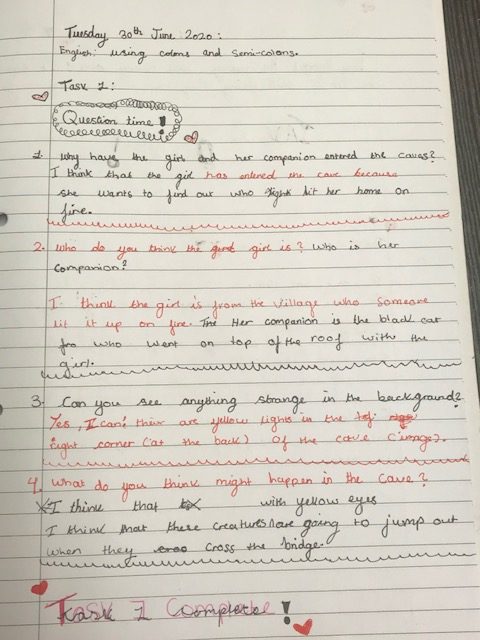 Tuesday 30th June 2020:
English: using colons and semi-colons.
Task 1:
Question time!
1. Why have the girl and her companion entered the caves?
I think that the girl has entered the cave because
she wants to find out who lit her home on
fire.
2. Who do you think the girl is? Who is her
companion?
I think the girl is from the village who someone
lit it up on fire. The Her companion is the black cat
fro who went on top of the roof with the
girl.
3. Can you see anything strange in the background?
Yes, I can! their are yellow lights in the top
right corner (at the back) of the cave (image).
4. What do you think might happen in the cave?
I think that with yellow eyes
I think that these creatures are going to jump out
when they cross the bridge.
Task 1 Complete!